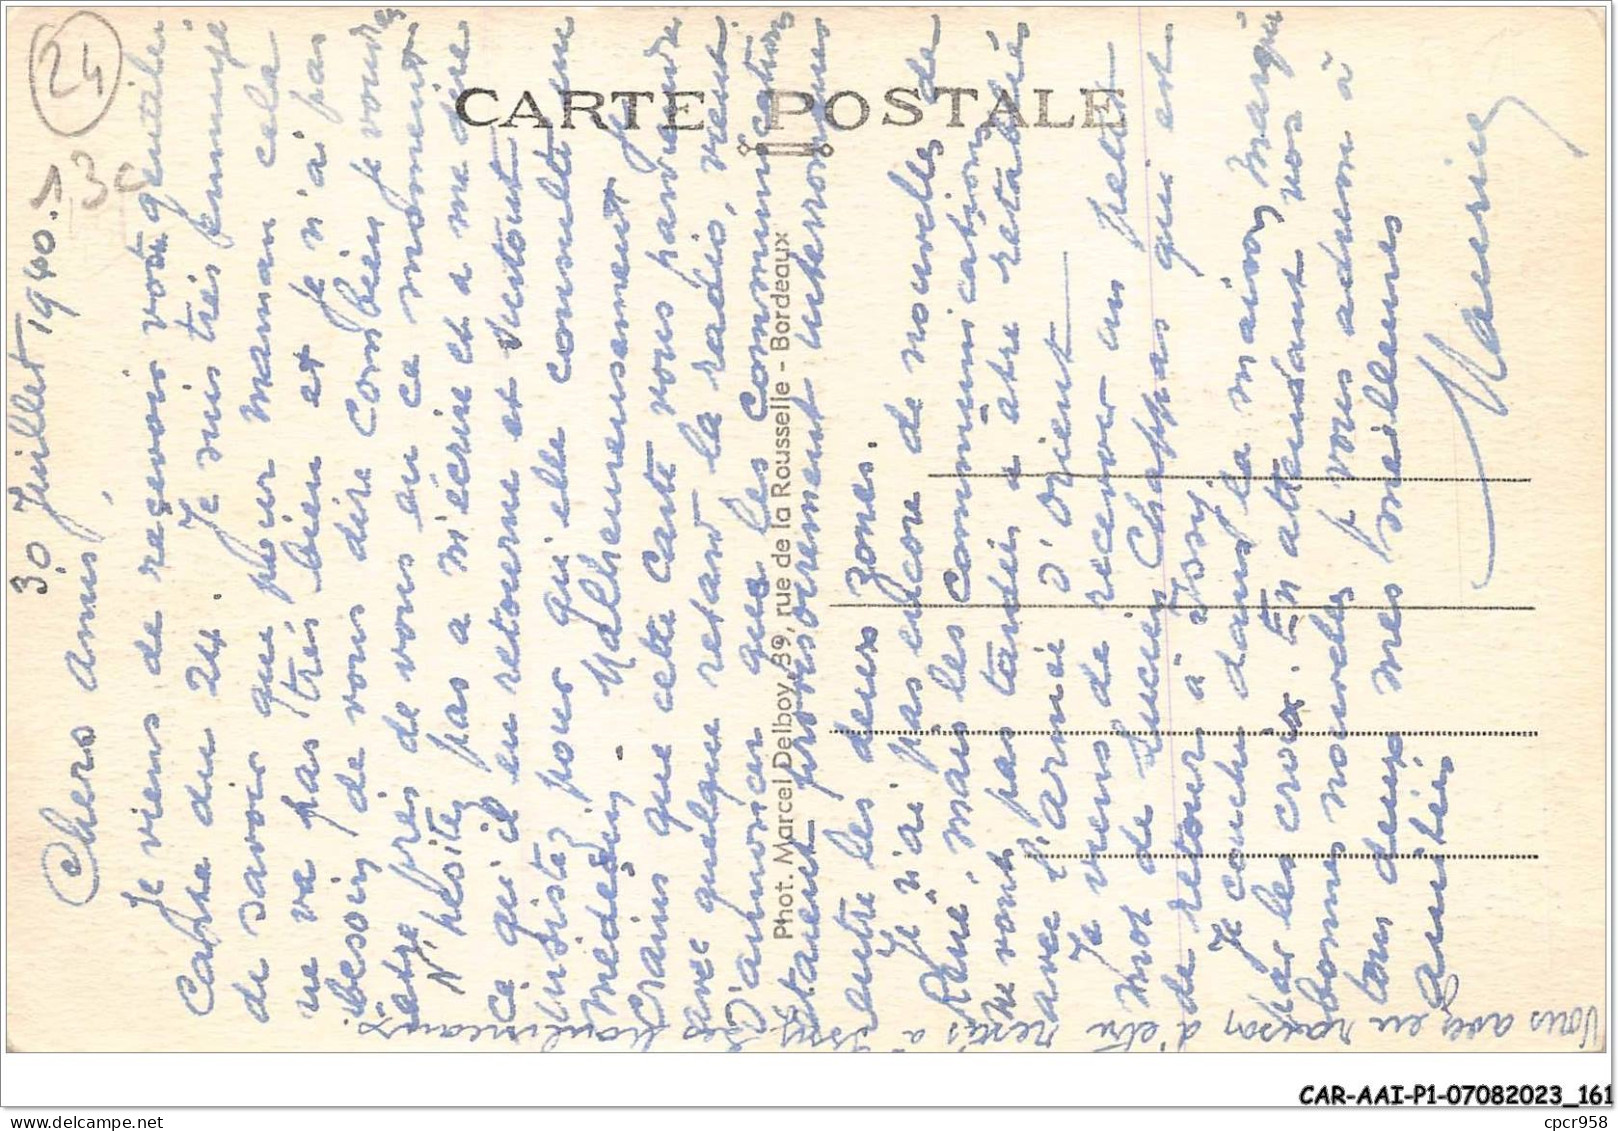 24
13c
CARTE POSTALE
Phot. Marcel Delboy, 39, rue de la Rousselle - Bordeaux
30 Juillet 1940.
Chers amis,
Je viens de recevoir votre gentille
Carte du 24. Je suis très ennuyé
de savoir que pour Maman cela
ne va pas très bien et je n'ai pas
besoin de vous dire combien je voudrais
être près de vous en ce moment.
N'hésitez pas a m'écrire et a me dire
ce qu'il en retourne et surtout
insistez pour qu'elle consulte un
Médecin. Malheureusement je
Crains que cette carte vous parvienne
avec quelque retard la radio, vient
d'annoncer que les Communications
étaient provisoirement interrompues
entre les deux zones.
Je n'ai pas encore de nouvelles de
René, mais les communications
ne vont pas tarder a être rétablies
avec l'armée d'Orient
Je viens de recevoir un petit
mot de Lucien Chappas qui est
de retour à Issy.
Je couche dans la maison marquée
par les croix. En attendant vos
bonnes nouvelles je vous adresse à
tous deux mes meilleures
Amitiés
Maurice
Vous avez eu raison d'être restés à Issy les Moulineaux.
CAR-AAI-P1-07082023_161
delcampe.net
cpcr958